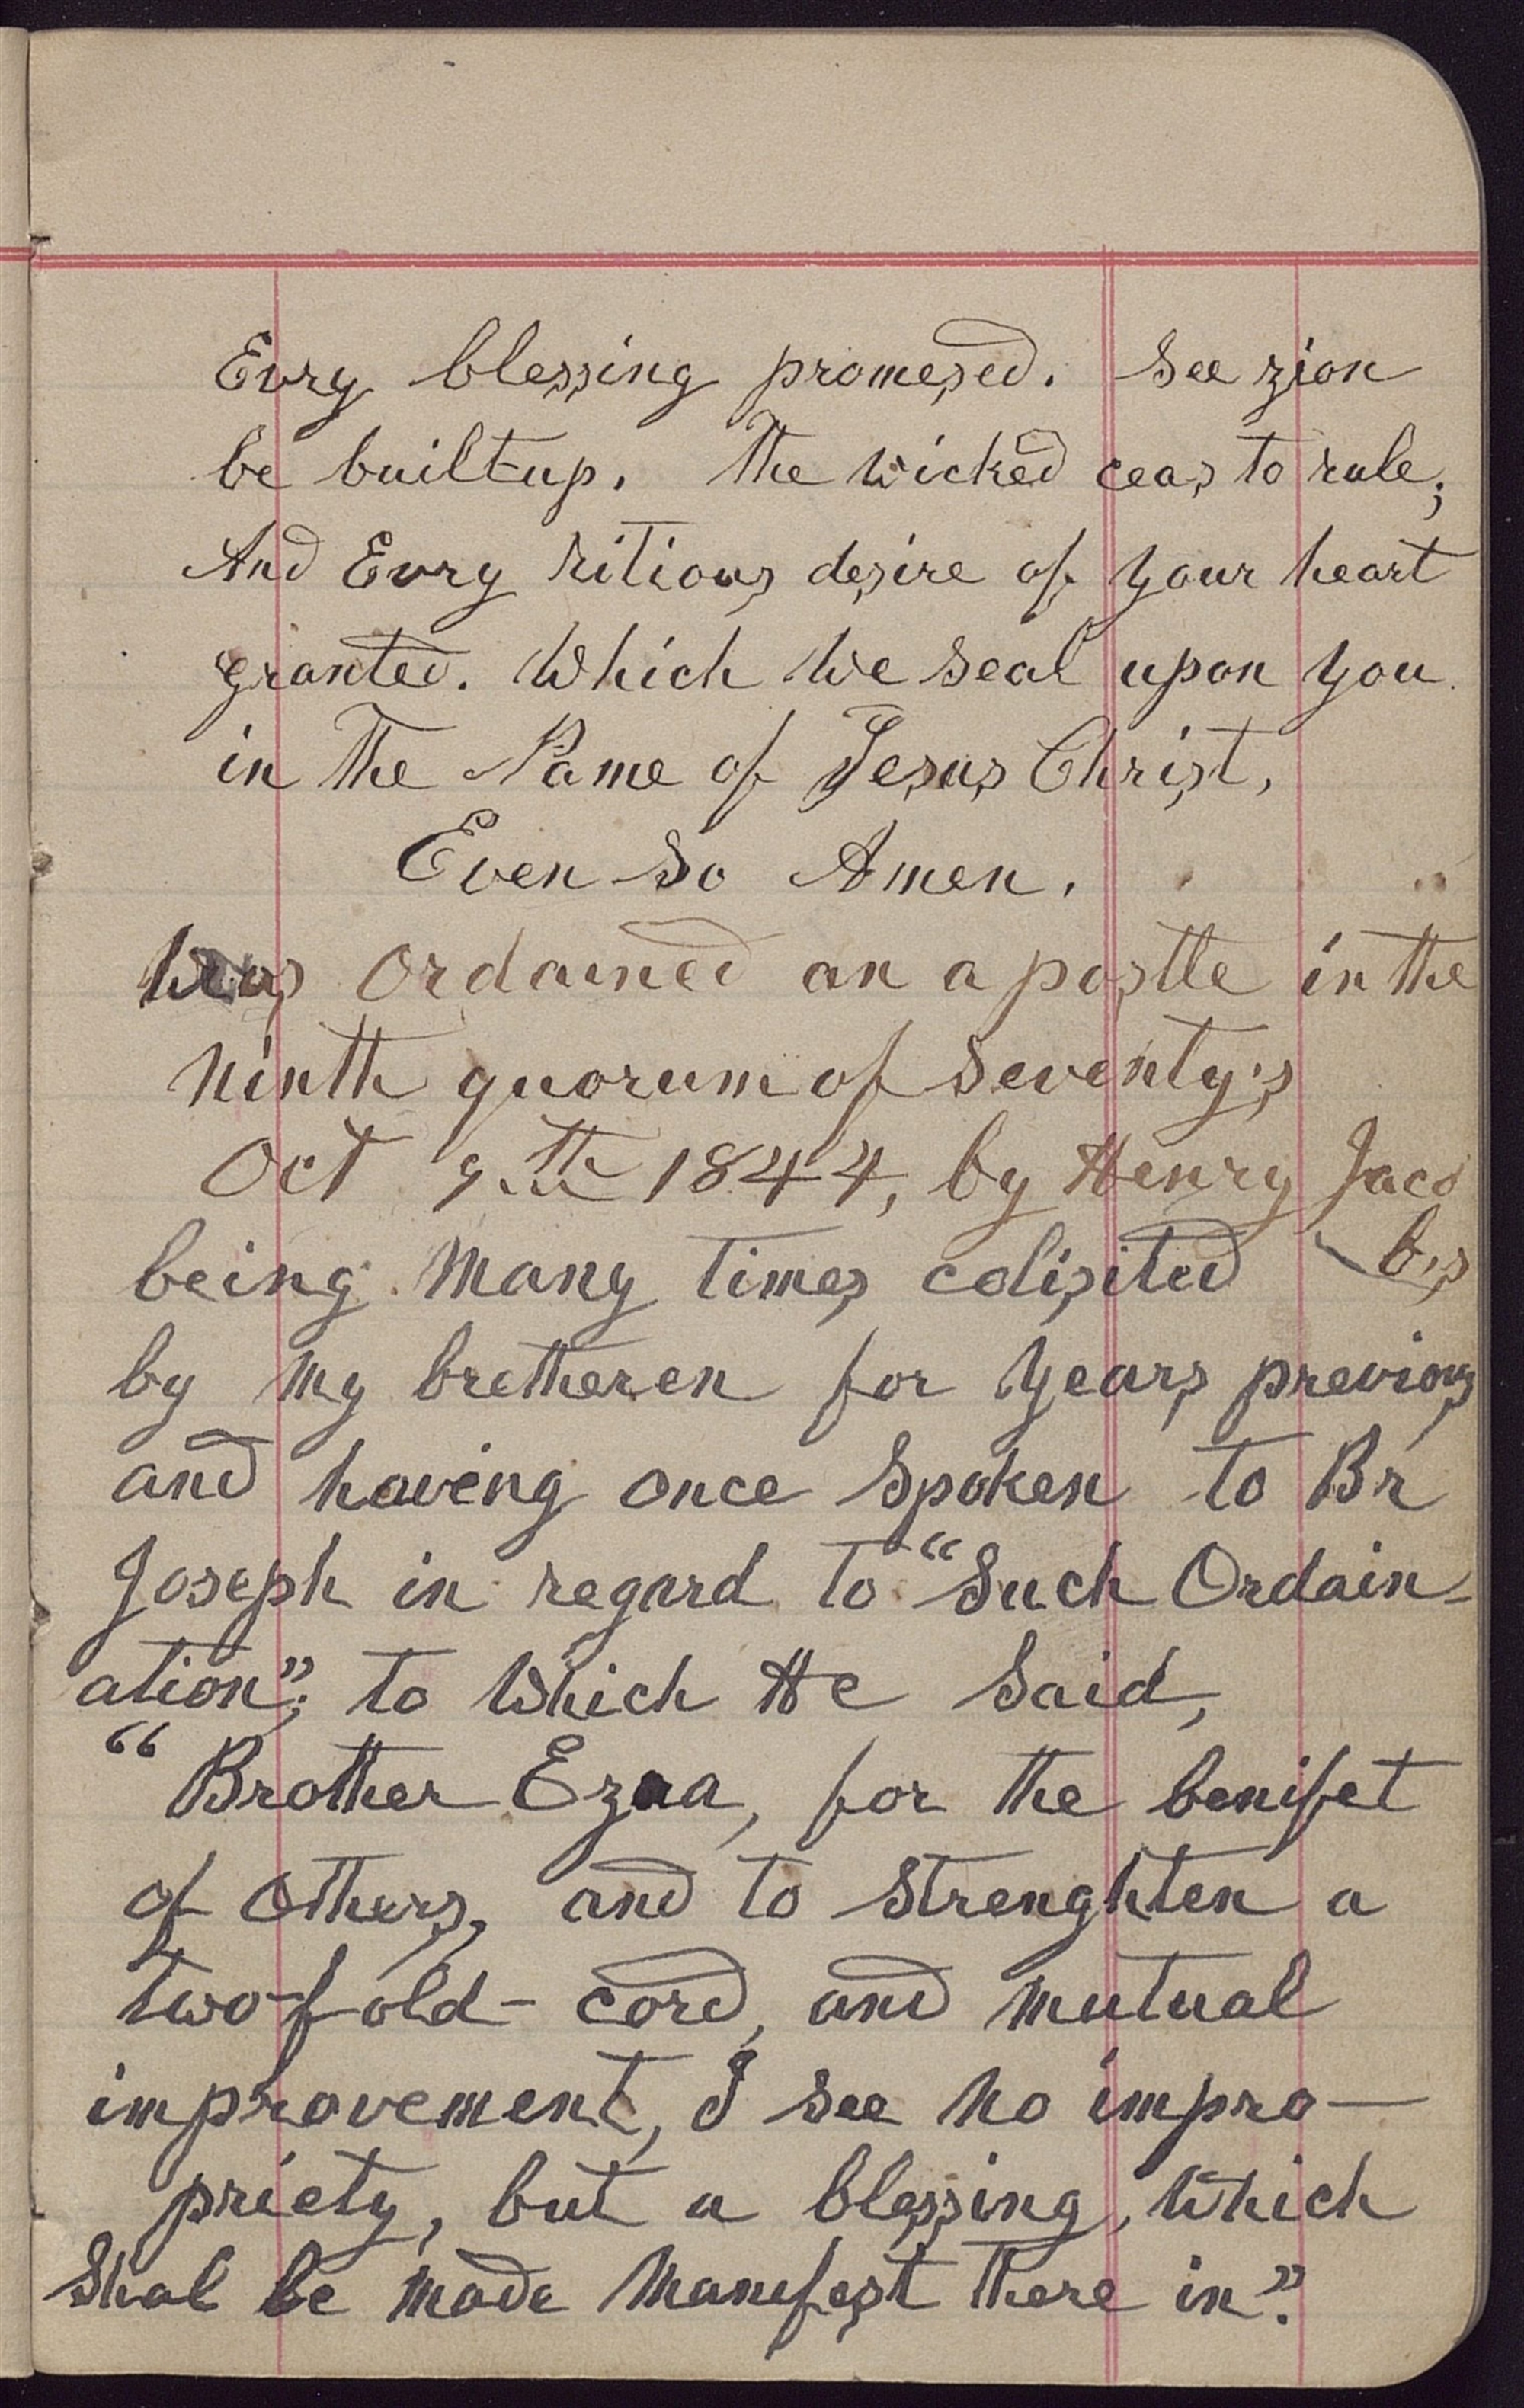 Evry blessing promesed. See zion
be built up. The wicked ceas to rule;
And Evry ritious desire of your heart
granted. Which We Seal upon you
in The Name of Jesus Christ,
Even So Amen.
Was Ordained an apostle in the
Ninth quorum of Seventy's
Oct 9.th 1844, by Henry Jaco
b,s
being many times colisited
by my bretheren for years previous
and having once Spoken to Br
Joseph in regard to "Such Ordain-
ation"; to Which He Said,
"Brother Ezra, for the benifet
of others, and to Strenghten a
two-fold-cord, and mutual
improvement, I see no impro-
priety, but a blessing, Which
Shal be made Manefest there in".